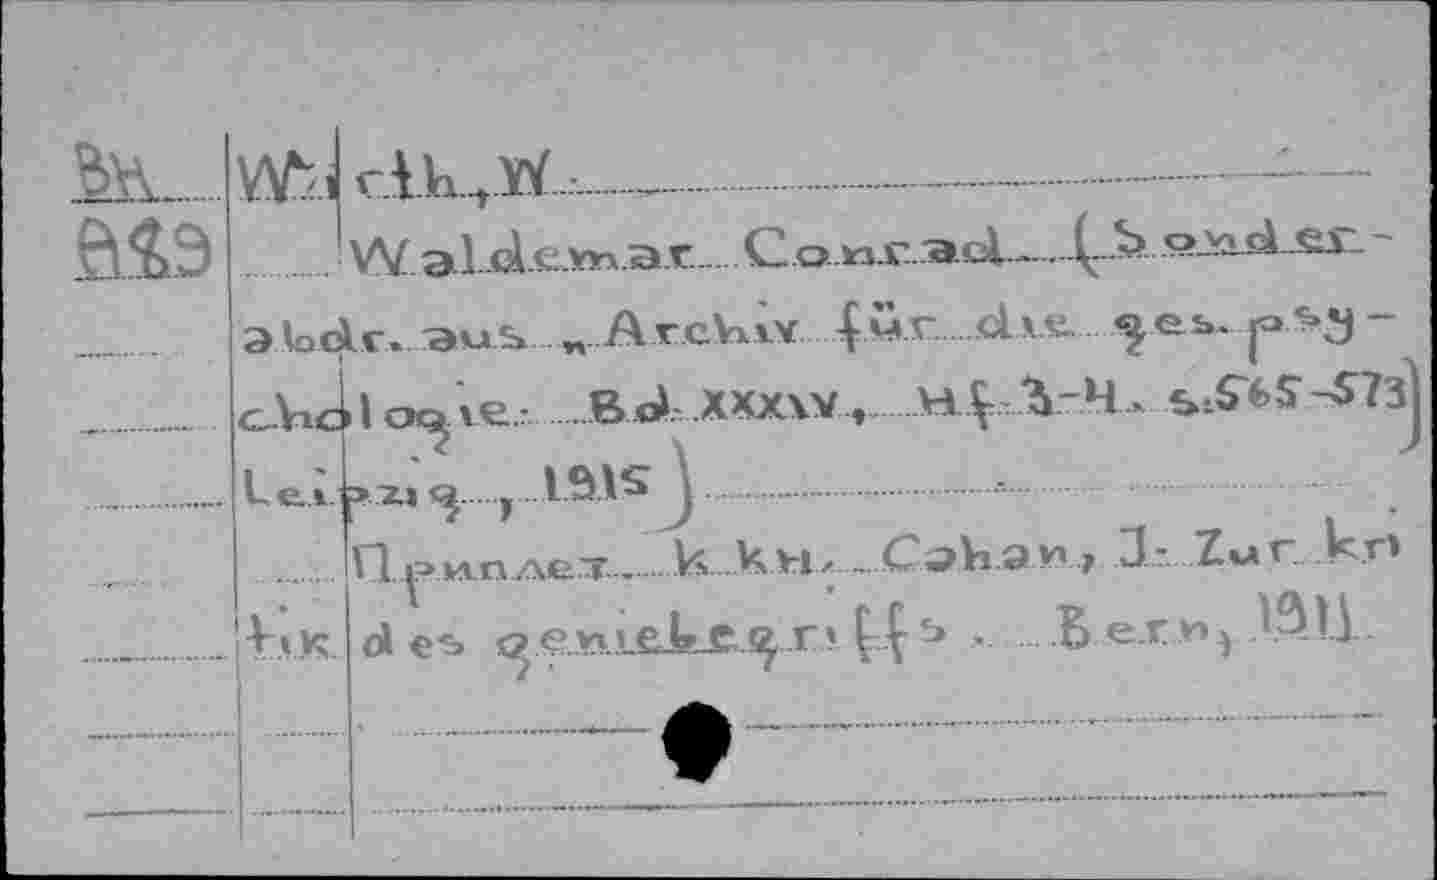 Вн Wirth, W.
Waldemar Conrad. (Sonder-
abdr. aus „Archiv für die ges. psy-
chologie. Bd. XXXIV, Hf. 3-4. s.565-573)
Leipzig, 1915)
Приплет. к кн. Cahan, J. Zur kri
tik des geniebegriffs. Bern, 1911.